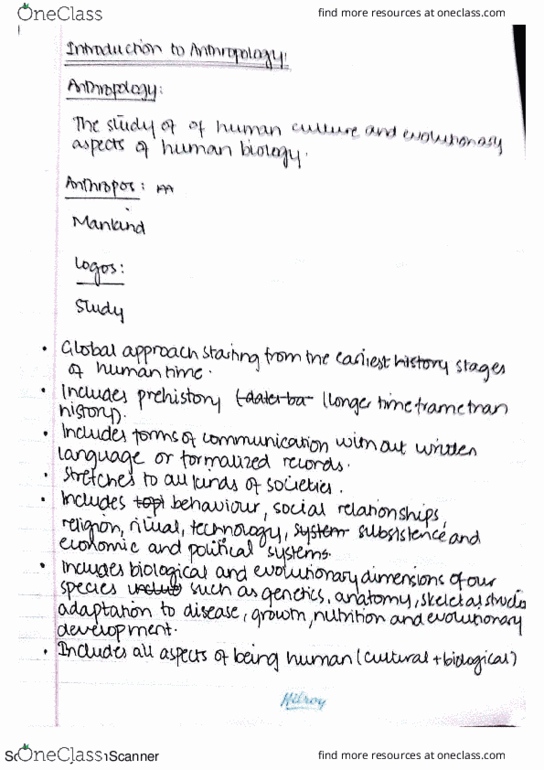 OneClass
find more resources at oneclass.com
Introduction to Anthropology:
Anthropology:
The study of of human culture and evolutionary
aspects of human biology.
Anthropos:
Mankind
Logos:
Study
• Global approach starting from the earliest history stages
of human time.
• Includes prehistory (longer timeframe than
history).
• Includes forms of communication without written
language or formalized records.
• Stretches to all kinds of societies.
• Includes topi behaviour, social relationships,
religion, ritual, technology, system subsistence and
economic and political systems.
• Includes biological and evolutionary dimensions of our
species includ such as genetics, anatomy, skeletal
adaptation to disease, growth, nutrition and evolutionary
development.
• Includes all aspects of being human (cultural + biological)
Hilroy
OneClass
Scanner
find more resources at oneclass.com